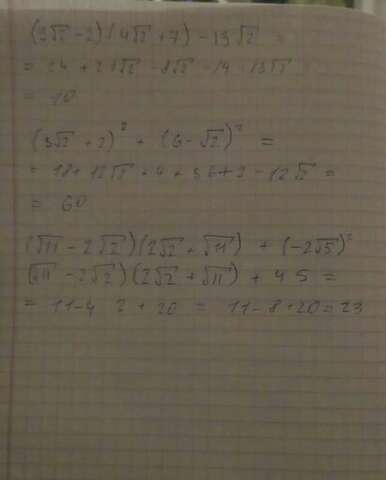 (3√2 - 2)(4√2 + 7) - 13√2 =
= 24 + 21√2 - 8√2 - 14 - 13√2
= 10
(3√2 + 2)² + (6 - √2)² =
= 18 + 12√2 + 4 + 36 + 2 - 12√2 =
= 60
(√11 - 2√2)(2√2 + √11) + (-2√5)²
(√11 - 2√2)(2√2 + √11) + 4 5 =
= 11 - 4 2 + 20 = 11 - 8 + 20 = 23